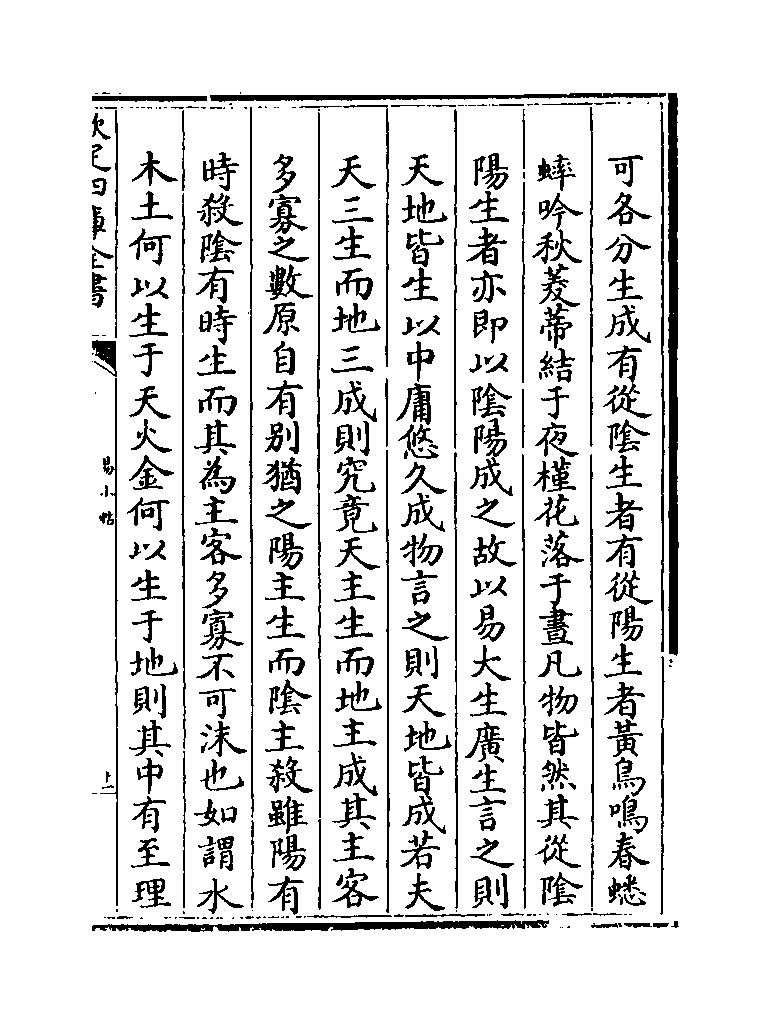 可各分生成有從陰生者有從陽生者黃鳥鳴春蟋
蟀吟秋菱蒂結于夜槿花落于晝凡物皆然其從陰
陽生者亦即以陰陽成之故以易大生廣生言之則
天地皆生以中庸悠久成物言之則天地皆成若夫
天三生而地三成則究竟天主生而地主成其主客
多寡之數原自有别猶之陽主生而陰主殺雖陽有
時殺陰有時生而其為主客多寡不可沬也如謂水
木土何以生于天火金何以生于地則其中有至理
欽定四庫全書
易小帖